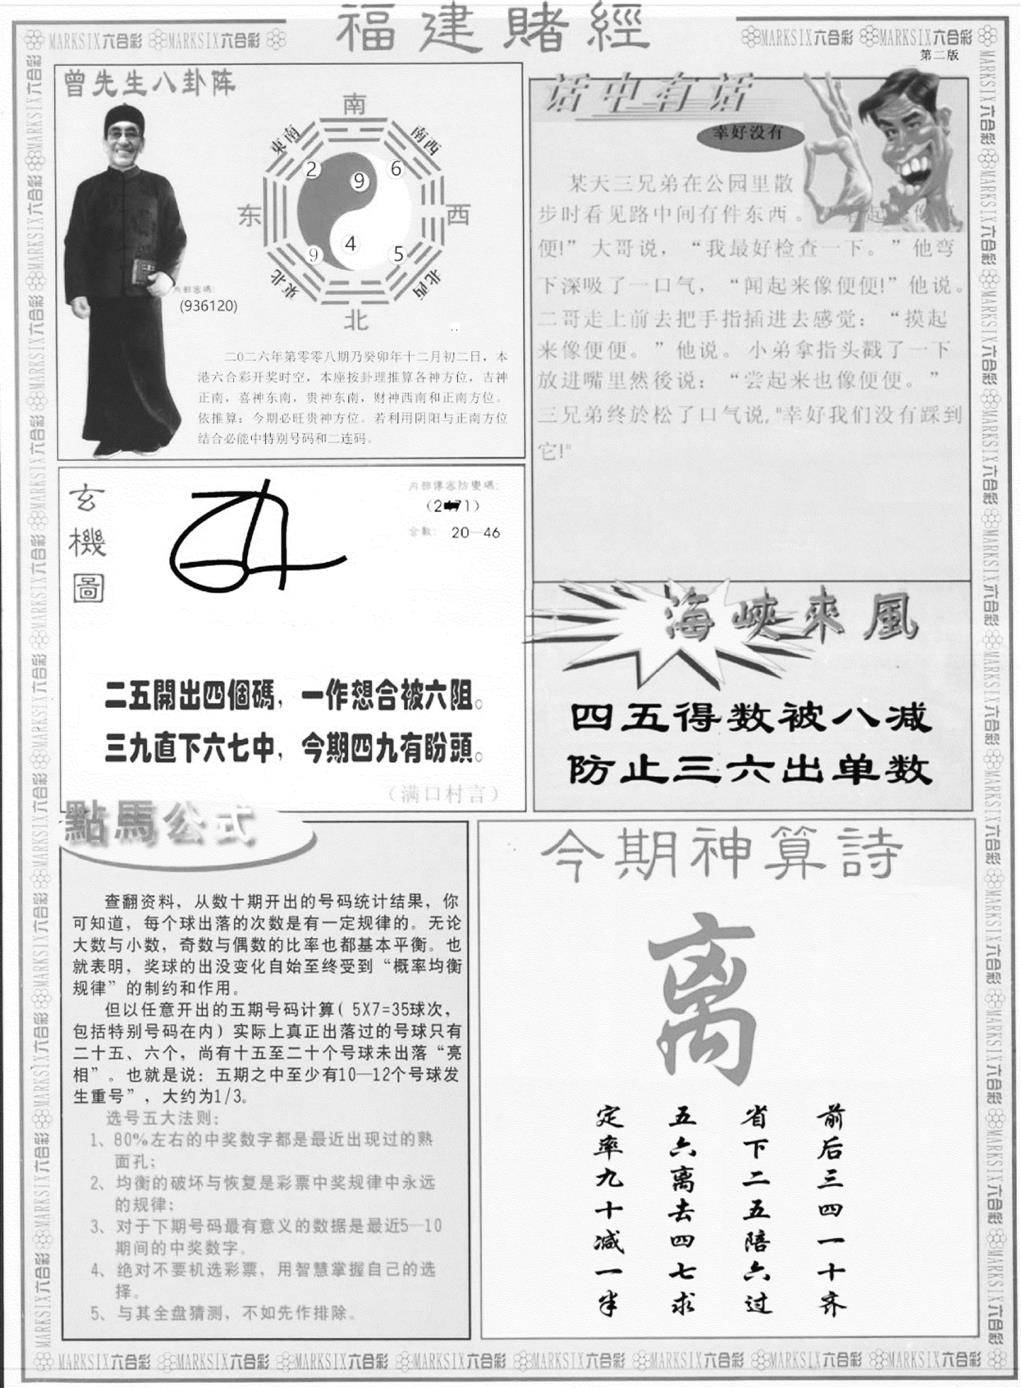 福建賭經
MARKSIX六合彩 MARKSIX六合彩
MARKSIX六合彩 MARKSIX六合彩
第二版
曾先生八卦阵
南
東南
南西
2
9
6
东
西
9
4
5
東北
北西
北
内部密碼:
(936120)
二0二六年第零零八期乃癸卯年十二月初二日，本
港六合彩开奖时空，本座按卦理推算各神方位，吉神
正南，喜神东南，贵神东南，财神西南和正南方位。
依推算：今期必旺贵神方位。若利用阴阳与正南方位
结合必能中特别号码和二连码。
话中有话
幸好没有
某天三兄弟在公园里散
步时看见路中间有件东西。
便!” 大哥说，“我最好检查一下。”他弯
下深吸了一口气，“闻起来像便便!”他说。
二哥走上前去把手指插进去感觉：“摸起
来像便便。”他说。小弟拿指头戳了一下
放进嘴里然後说：“尝起来也像便便。”
三兄弟终於松了口气说,"幸好我们没有踩到
它!"
玄機圖
内部傳密防變碼:
合數: 20—46
二五開出四個碼，一作想合被六阻。
三九直下六七中，今期四九有盼頭。
（满口村言）
海峽來風
四五得数被八减
防止三六出单数
點馬公式
查翻资料，从数十期开出的号码统计结果，你
可知道，每个球出落的次数是有一定规律的。无论
大数与小数，奇数与偶数的比率也都基本平衡。也
就表明，奖球的出没变化自始至终受到“概率均衡
规律”的制约和作用。
但以任意开出的五期号码计算( 5X7=35球次，
包括特别号码在内) 实际上真正出落过的号球只有
二十五、六个，尚有十五至二十个号球未出落“亮
相”。也就是说：五期之中至少有10—12个号球发
生重号”，大约为1/3。
选号五大法则:
1、80%左右的中奖数字都是最近出现过的熟
面孔;
2、均衡的破坏与恢复是彩票中奖规律中永远
的规律;
3、对于下期号码最有意义的数据是最近5—10
期间的中奖数字。
4、绝对不要机选彩票，用智慧掌握自己的选
择。
5、与其全盘猜测，不如先作排除。
今期神算詩
离
前后三四一十齐
省下二五陪六过
五六离去四七求
定率九十减一半
MARKSIX六合彩 MARKSIX六合彩 MARKSIX六合彩 MARKSIX六合彩 MARKSIX六合彩 MARKSIX六合彩 MARKSIX六合彩 MARKSIX六合彩